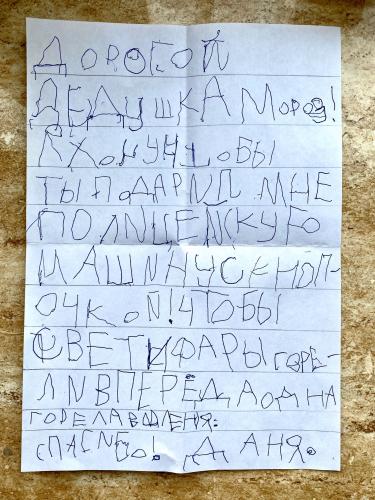 ДОРОГОЙ
ДЕДУШКА МОРОЗ!
Я ХОЧУ ЧТОБЫ
ТЫ ПОДАРИЛ МНЕ
ПОЛИЦЕЙСКУЮ
МАШИНУ С КНОП-
ОЧКОЙ! ЧТОБЫ
СВЕТ И ФАРЫ ГОРЕ-
ЛИ ВПЕРЁД А ОДНА
ГОРЕЛА
СПАСИБО! ДАНЯ.